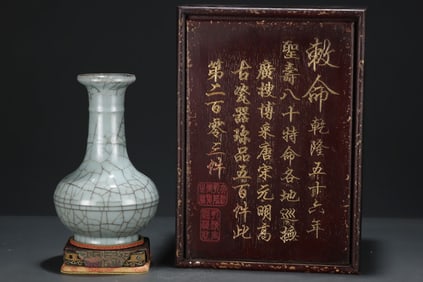 敕命 乾隆五十六年
聖壽八十特命各地巡撫
廣搜博采唐宋元明高
古瓷器珍品五百件此
第二百零三件